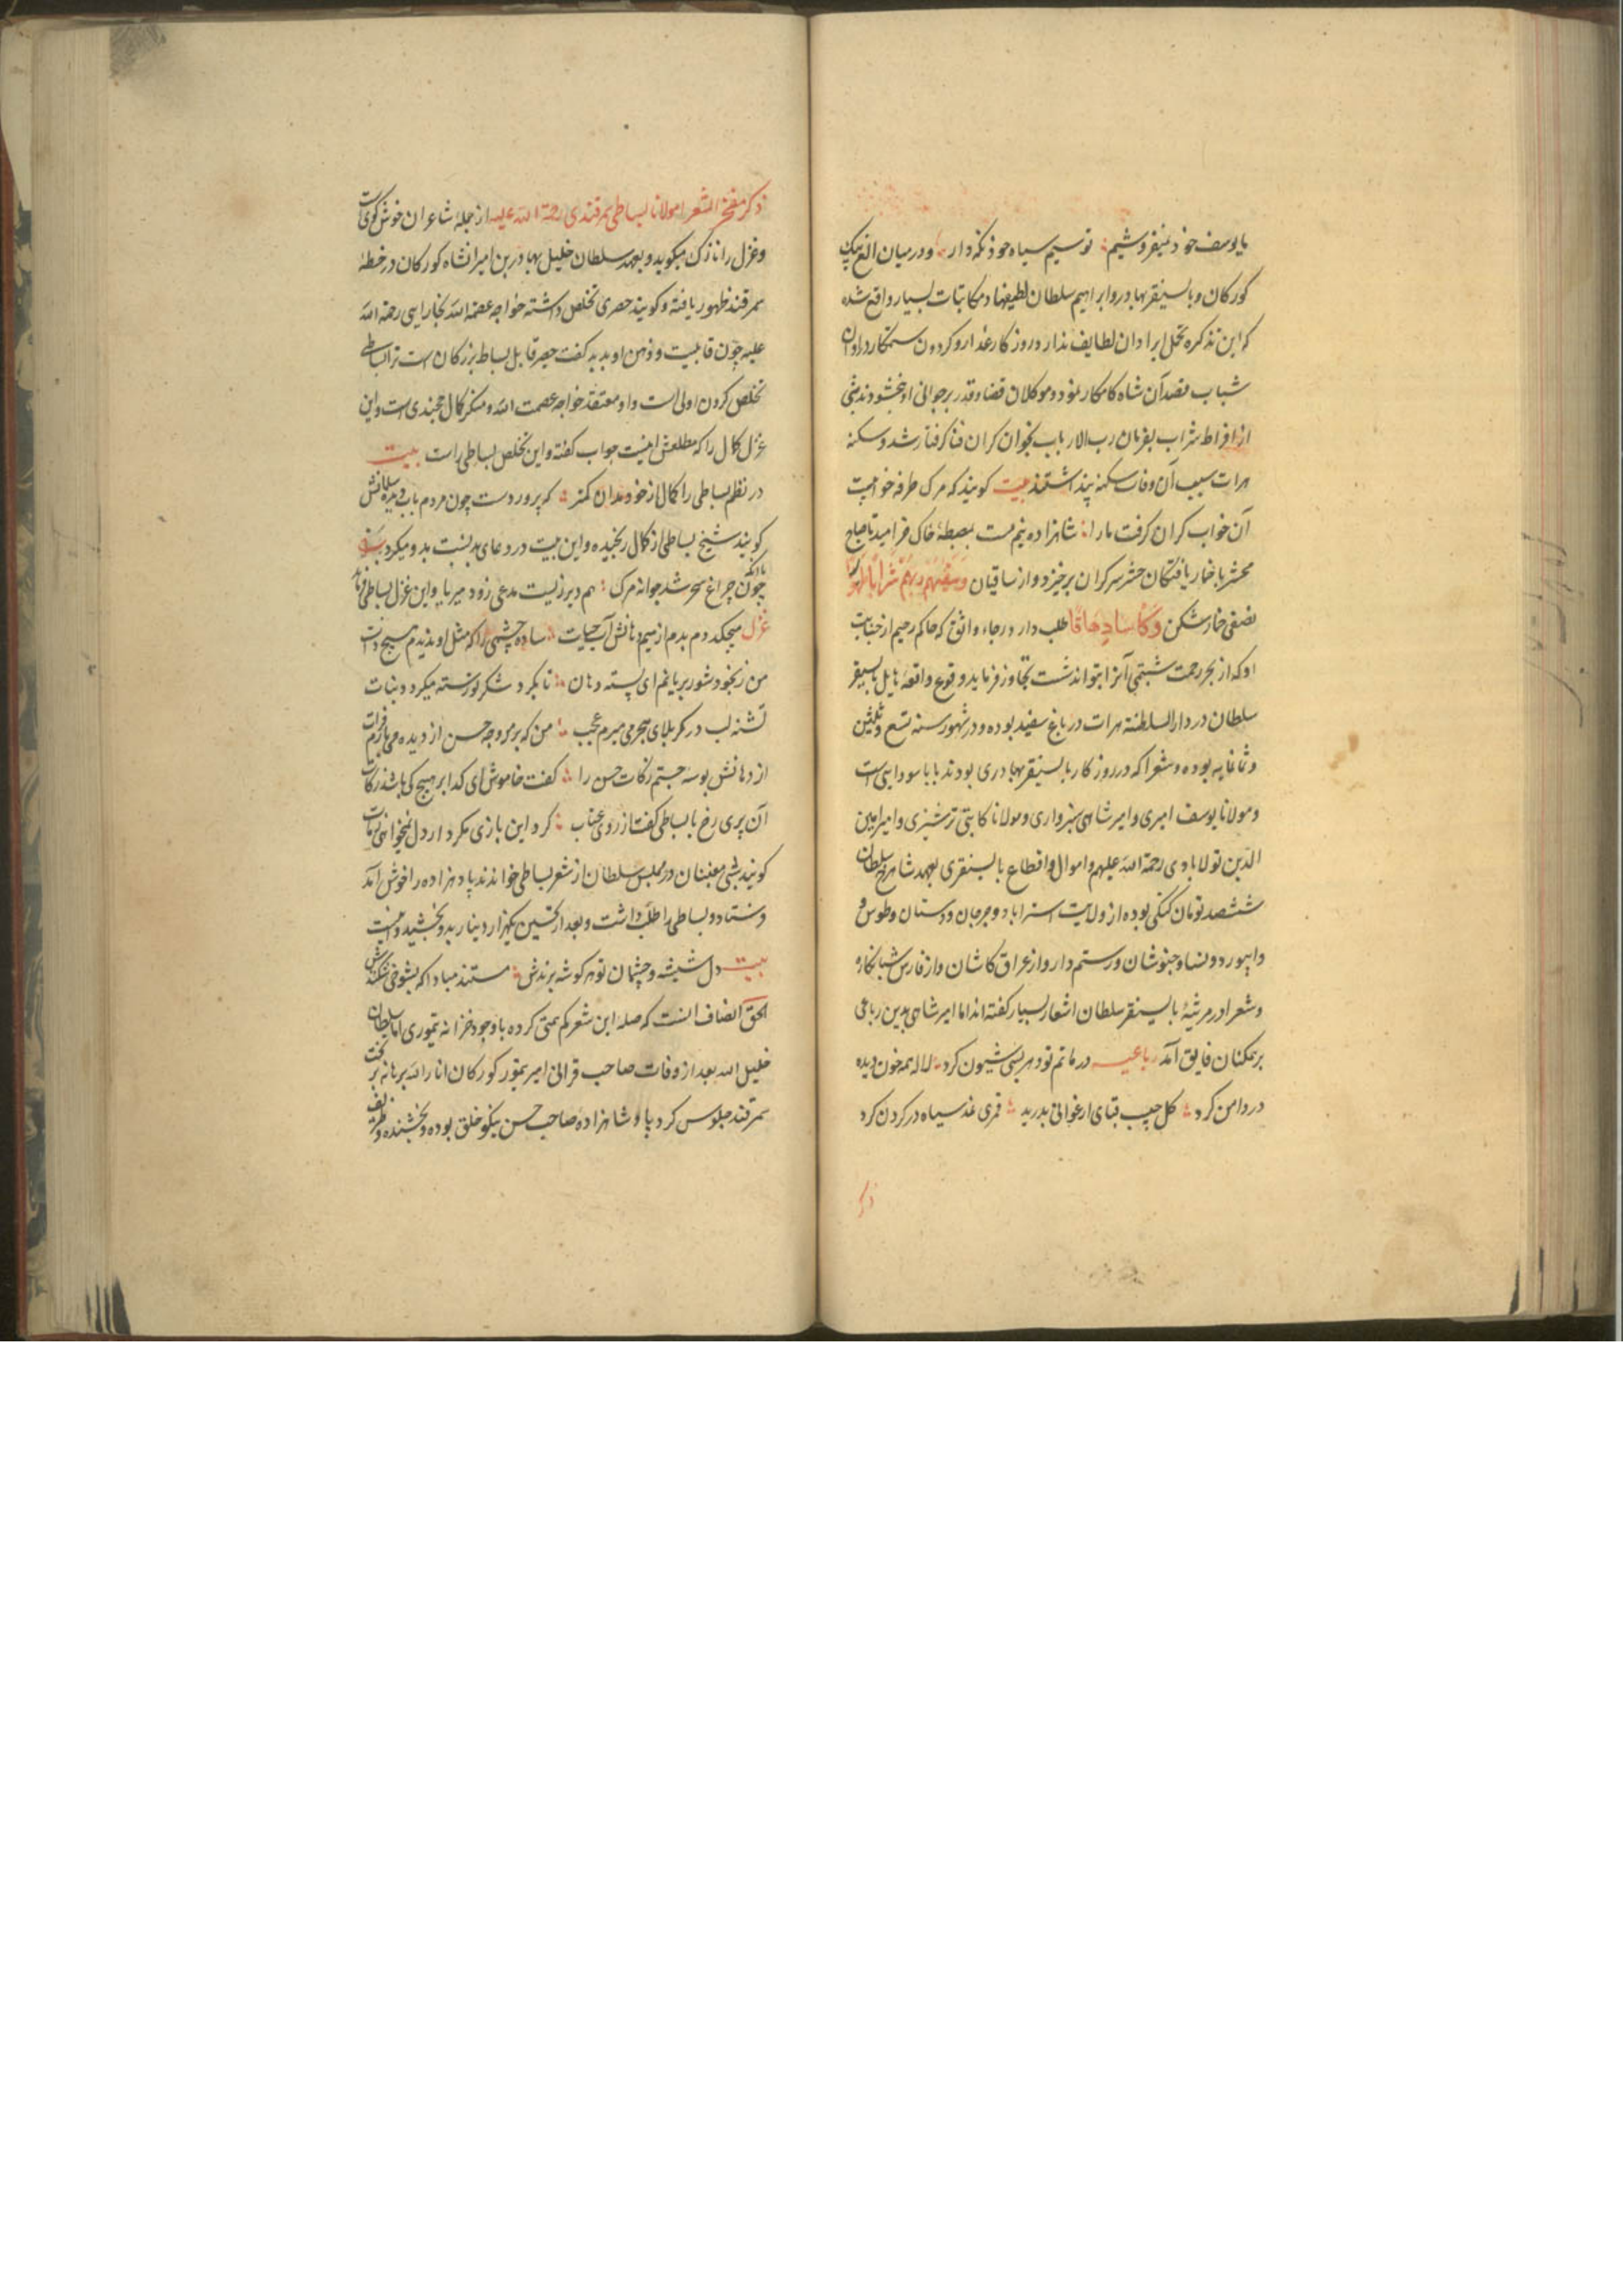 ما یوسف خود نمیفروشیم تو سیم سیاه خود نکه دار و در میان الغ بیک
کورکان و بایسنقر بهادر و ابراهیم سلطان لطیفها و مکاتبات بسیار واقع شده
که این تذکره تحمل ایراد ان لطایف ندارد و روزکار غدار و کردون ستمکار در اوان
شباب قصد آن شاه کامکار نمود و موکلان قضا و قدر بر جوانی او نبخشودند شبی
از افراط شراب بفرمان رب الارباب بخواب کران فنا کرفتار شد و سکنه
هرات سبب آن وفات سکته پنداشتند بیت کویند که مرک طرفه خوابیست
آن خواب کران کرفت ما را شاهزاده نیم مست بمصطبهٔ خاک خرامید تا صباح
محشر با خمار یافتکان حشر سرکران برخیزد و از ساقیان وسقیهم ربهم شرابا طهورا
نصفی خمار شکن وکاسا دهاقا طلب دارد و رجاء واثق که حاکم رحیم از جنایت
او که از بحر رحمت شبنمی آنرا بتواند شست تجاوز فرماید و وقوع واقعه هایل بایسنقر
سلطان در دار السلطنه هرات در باغ سفید بوده و در شهور سنه تسع و ثلثین
و ثمانمایه بوده و شعرا که در روزکار بایسنقر بهادری بودند بابا سودایی است
و مولانا یوسف امیری و امیر شاهی سبزواری و مولانا کاتبی ترشیزی و امیر امین
الدین نزلابادی رحمة الله علیهم و اموال و اقطاع بایسنقری بعهد شاهرخ سلطان
ششصد تومان کپکی بوده از ولایت استراباد و جرجان و دهستان و طوس و
و ابیورد و نسا و خبوشان و رستم دار و از عراق کاشان و از فارس شبانکاره
و شعرا در مرثیهٔ بایسنقر سلطان اشعار بسیار کفته اند اما امیر شاهی بدین رباعی
بر همکنان فایق آمد رباعیه در ماتم تو دهر بسی شیون کرد لاله همه خون دیده
در دامن کرد کل جیب قبای ارغوانی بدرید قمری نمد سیاه در کردن کرد
ذکر
ذکر مفخر الشعرا مولانا بساطی سمرقندی رحمة الله علیه از جمله شاعران خوش کوی است
و غزل را نازک میکوید و بعهد سلطان خلیل بهادر بن امیرانشاه کورکان در خطهٔ
سمرقند ظهور یافته و کویند حصری تخلص داشته خواجه عصمة الله بخارایی رحمة الله
علیه چون قابلیت و ذهن او بدید کفت حصیر قابل بساط بزرکان است ترا بساطی
تخلص کردن اولی است و او معتقد خواجه عصمت الله و منکر کمال خجندی است و این
غزل کمال را که مطلعش اینست جواب کفته و این تخلص بساطی راست بیت
در نظم بساطی را کمال از خود مدان کمتر که پروردست چون مردم باب دیده سلمانش
کویند شیخ بساطی از کمال رنجیده و این بیت در دعای بد نسبت بدو میکرد بیت
چون چراغ سحر شد جوانه مرک هم دیر زیست مدعی زود میر ما و این غزل بساطی فرماید
غزل میچکد دم بدم از سیم دهانش آب حیات ساده چشمی را که مثل او ندیدم هیچ ذات
من ز نخود شور بریانم ای پسته دهان تا بکرد شکر تو رسته میکردد نبات
تشنه لب در کربلای هجر می میرم عجب من که بر مر وجه حسن از دیده می بارم فرات
از دهانش بوسه جستم زکات حسن را کفت خاموش ای کدا بر هیچ کی باشد زکات
آن پری رخ با بساطی کفت از روی عتاب کرد این بازی مکرد ار دل نمیخواهی مات
کویند شبی مغنیان در مجلس سلطان از شعر بساطی خواندند پادهزاده را خوش آمد
و ستاد و بساطی را طلب داشت و بعد از تحسین یکهزار دینار بدو بخشید و اینست
بیت دل شیشه و چشمان تو هر کوشه برندش مستند مبادا که بشوخی شکنندش
الحق انصاف انست که صله این شعر کم همتی کرده با وجود خزانه تیموری اما سلطان
خلیل الله بعد از وفات صاحب قرانی امیر تیمور کورکان انار الله برهانه بر تخت
سمرقند جلوس کرد پادشاهزاده صاحب حسن نیکو خلق بوده و بخشنده و ظریف